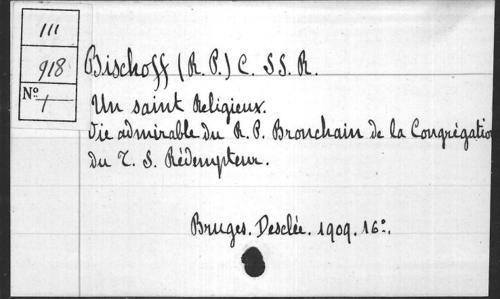 111
918
Nº 1
Bischoff (R. P.) C. SS. R.
Un saint Religieux.
Vie admirable du R. P. Bronchain de la Congrégation
du T. S. Rédempteur.
Bruges. Desclée. 1909. 16º.